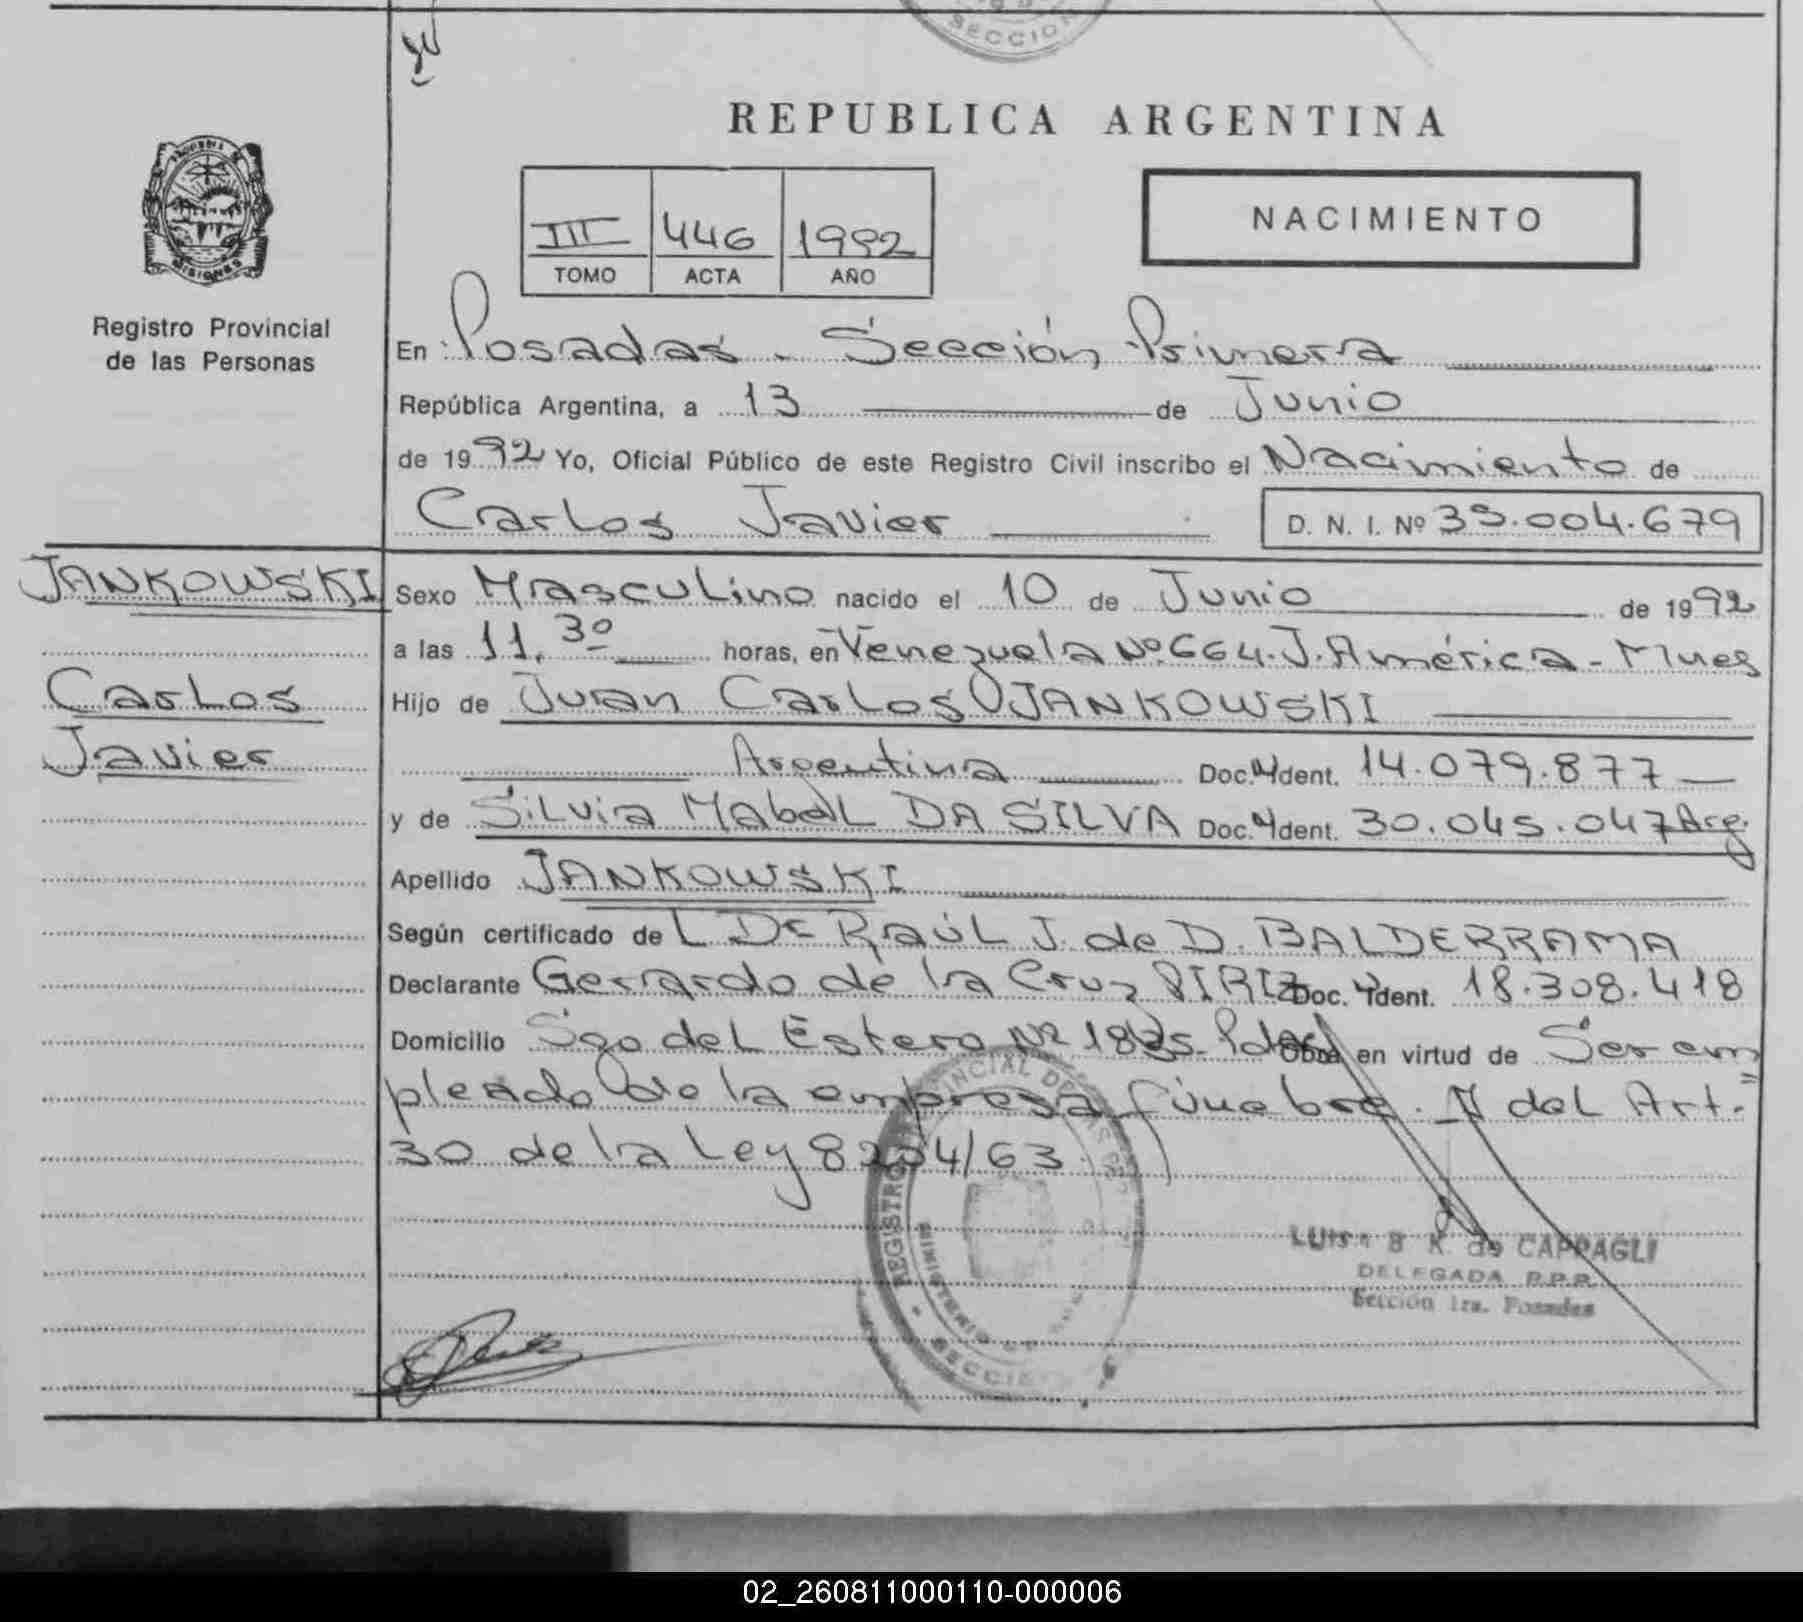 SECCION
REPUBLICA ARGENTINA
III 446 1992
TOMO ACTA AÑO
NACIMIENTO
MISIONES
Registro Provincial
de las Personas
En Posadas - Sección Primera
República Argentina, a 13 de Junio
de 1992 Yo, Oficial Público de este Registro Civil inscribo el Nacimiento de
Carlos Javier D. N. I. Nº 39.004.679
JANKOWSKI
Carlos
Javier
Sexo Masculino nacido el 10 de Junio de 1992
a las 11,30 horas, en Venezuela Nº 664. J. América - Mnes
Hijo de Juan Carlos JANKOWSKI
Argentina Doc. Ident. 14.079.877
y de Silvia Mabel DA SILVA Doc. Ident. 30.045.047 Arg.
Apellido JANKOWSKI
Según certificado de L Dr Raúl J. de D. BALDERRAMA
Declarante Gerardo de la Cruz PIRIZ Doc. Ident. 18.308.418
Domicilio Sgo del Estero Nº Pdas Obra en virtud de Ser em
pleado de la empresa fúnebre. del Art.
30 de la Ley 8204/63
REGISTRO PROVINCIAL DE LAS PER
MINISTERIO
SECCIO
K de CAPPAGLI
DELEGADA R.P.P.
Sección 1ra. Posadas
02_260811000110-000006